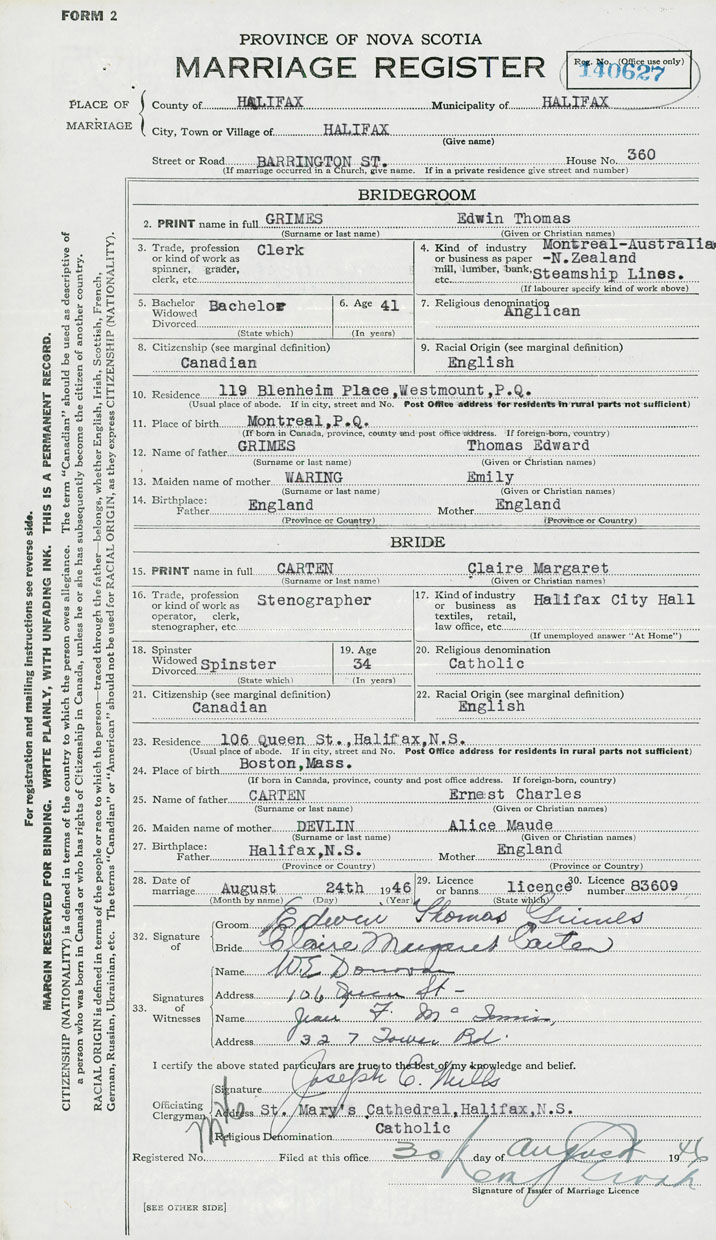 FORM 2
PROVINCE OF NOVA SCOTIA
MARRIAGE REGISTER
Reg. No. (Office use only)
140627
PLACE OF MARRIAGE
County of HALIFAX Municipality of HALIFAX
City, Town or Village of HALIFAX
(Give name)
Street or Road BARRINGTON ST. House No. 360
(If marriage occurred in a Church, give name. If in a private residence give street and number)
BRIDEGROOM
2. PRINT name in full GRIMES Edwin Thomas
(Surname or last name) (Given or Christian names)
3. Trade, profession or kind of work as spinner, grader, clerk, etc. Clerk
4. Kind of industry or business as paper mill, lumber, bank, etc. Montreal-Australia -N.Zealand Steamship Lines.
(If labourer specify kind of work above)
5. Bachelor Widowed Divorced Bachelor
(State which)
6. Age 41
(In years)
7. Religious denomination Anglican
8. Citizenship (see marginal definition) Canadian
9. Racial Origin (see marginal definition) English
10. Residence 119 Blenheim Place,Westmount,P.Q.
(Usual place of abode. If in city, street and No. Post Office address for residents in rural parts not sufficient)
11. Place of birth Montreal,P.Q.
(If born in Canada, province, county and post office address. If foreign-born, country)
12. Name of father GRIMES Thomas Edward
(Surname or last name) (Given or Christian names)
13. Maiden name of mother WARING Emily
(Surname or last name) (Given or Christian names)
14. Birthplace: Father England Mother England
(Province or Country) (Province or Country)
BRIDE
15. PRINT name in full CARTEN Claire Margaret
(Surname or last name) (Given or Christian names)
16. Trade, profession or kind of work as operator, clerk, stenographer, etc Stenographer
17. Kind of industry or business as textiles, retail, law office, etc. Halifax City Hall
(If unemployed answer "At Home")
18. Spinster Widowed Divorced Spinster
(State which)
19. Age 34
(In years)
20. Religious denomination Catholic
21. Citizenship (see marginal definition) Canadian
22. Racial Origin (see marginal definition) English
23. Residence 106 Queen St.,Halifax,N.S.
(Usual place of abode. If in city, street and No. Post Office address for residents in rural parts not sufficient)
24. Place of birth Boston,Mass.
(If born in Canada, province, county and post office address. If foreign-born, country)
25. Name of father CARTEN Ernest Charles
(Surname or last name) (Given or Christian names)
26. Maiden name of mother DEVLIN Alice Maude
(Surname or last name) (Given or Christian names)
27. Birthplace: Father Halifax,N.S. Mother England
(Province or Country) (Province or Country)
28. Date of marriage August 24th 1946
(Month by name) (Day) (Year)
29. Licence or banns licence
(State which)
30. Licence number 83609
32. Signature of
Groom Edwin Thomas Grimes
Bride Claire Margaret Carten
33. Signatures of Witnesses
Name W.E Donovan
Address 106 Queen St -
Name Jean F. Mc
Address 327 Tower Rd.
I certify the above stated particulars are true to the best of my knowledge and belief.
Officiating Clergyman
Signature Joseph C. Mills
Address St. Mary's Cathedral,Halifax,N.S.
Religious Denomination Catholic
Registered No. Filed at this office 30 day of August 1946
Signature of Issuer of Marriage Licence
[SEE OTHER SIDE]
For registration and mailing instructions see reverse side.
MARGIN RESERVED FOR BINDING. WRITE PLAINLY, WITH UNFADING INK. THIS IS A PERMANENT RECORD.
CITIZENSHIP (NATIONALITY) is defined in terms of the country to which the person owes allegiance. The term "Canadian" should be used as descriptive of
a person who was born in Canada or who has rights of Citizenship in Canada, unless he or she has subsequently become the citizen of another country.
RACIAL ORIGIN is defined in terms of the people or race to which the person—traced through the father—belongs, whether English, Irish, Scottish, French,
German, Russian, Ukrainian, etc. The terms "Canadian" or "American" should not be used for RACIAL ORIGIN, as they express CITIZENSHIP (NATIONALITY).